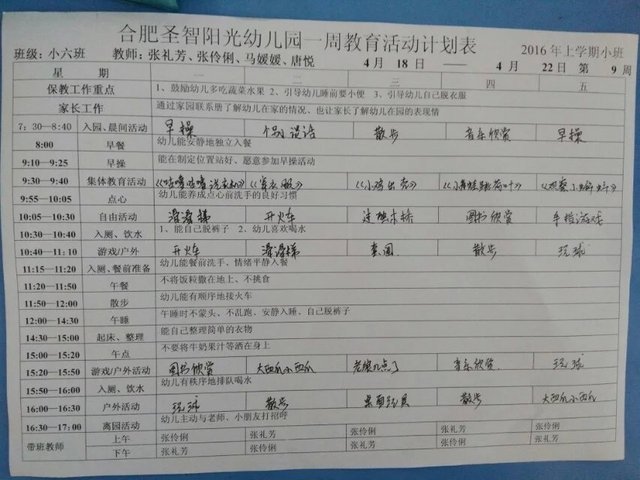 合肥圣智阳光幼儿园一周教育活动计划表
班级：小六班 教师：张礼芳、张伶俐、马媛媛、唐悦 4 月 18 日 —— 4 月 22 日 第 9 周 2016 年上学期小班
星 期 一 二 三 四 五
保教工作重点 1、鼓励幼儿多吃蔬菜水果 2、引导幼儿睡前要小便 3、引导幼儿自己脱衣服
家长工作 通过家园联系册了解幼儿在家的情况、也让家长了解幼儿在园的表现情
7：30—8:40 入园、晨间活动 早操 个别谈话 散步 音乐欣赏 早操
8:00 早餐 幼儿能安静地独立入餐
9:10—9:25 早操 能在制定位置站好、愿意参加早操活动
9:30—9:40 集体教育活动 《咕噜咕噜洗衣机》 《穿衣服》 《小鸡出壳》
9:55—10:05 点心 幼儿能养成点心前洗手的良好习惯
10:05—10:30 自由活动 滑滑梯 开火车 图书欣赏 手指游戏
10:30—10:40 入厕、饮水 1、能自己脱裤子 2、幼儿喜欢喝水
10:40—11:10 游戏/户外 开火车 滑滑梯 散步 玩球
11:15—11:20 入厕、餐前准备 幼儿能餐前洗手、情绪平静入餐
11:20—11:50 午餐 不将饭粒撒在地上、不挑食
11:50—12:00 散步 幼儿能有顺序地接火车
12:00—14:30 午睡 午睡时不蒙头、不乱跑、安静入睡、自己脱裤子
14:30—15:00 起床、整理 能自己整理简单的衣物
15:00—15:20 午点 不要将牛奶果汁等洒在身上
15:20—15:50 游戏/户外活动 图书欣赏 大西瓜小西瓜 老狼几点了 音乐欣赏 玩球
15:50—16:00 入厕、饮水 幼儿有秩序地排队喝水
16:00—16:30 户外活动 玩球 散步 桌面玩具 散步 大西瓜小西瓜
16:30—17:00 离园活动 幼儿主动与老师、小朋友打招呼
带班教师 上午 张伶俐 张礼芳 张伶俐 张礼芳 张伶俐
下午 张礼芳 张伶俐 张礼芳 张伶俐 张礼芳